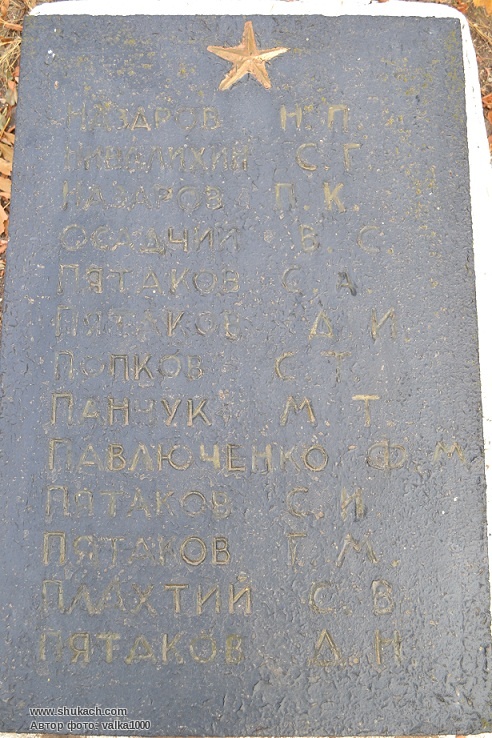 НАЗАРОВ Н. П.
С. Г.
НАЗАРОВ П. К.
ОСАДЧИЙ В. С.
ПЯТАКОВ С. А.
ПЯТАКОВ Д. И.
ПОПКОВ С. Т.
ПАНЧУК М. Т.
ПАВЛЮЧЕНКО Ф. М
ПЯТАКОВ С. И.
ПЯТАКОВ Г. М.
ПЛАХТИЙ С. В.
ПЯТАКОВ Д. Н
www.shukach.com
Автор фото: valka1000